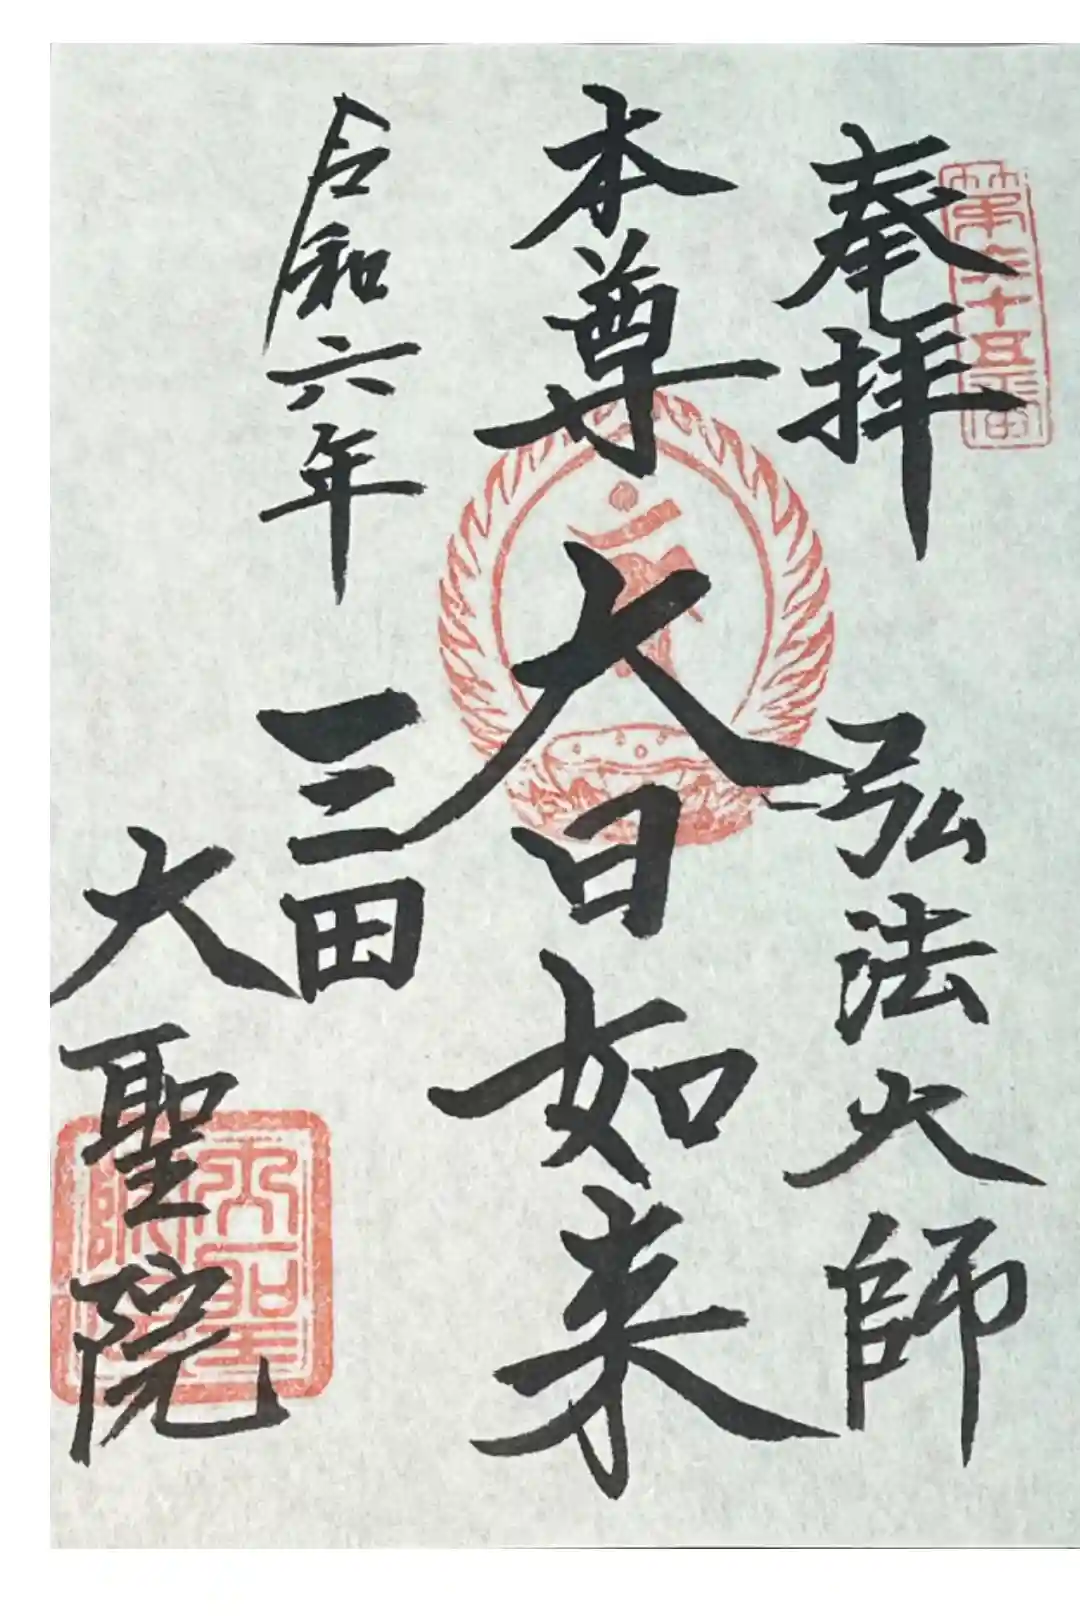 奉拝
弘法大師
本尊
大日如来
令和六年
三田
大聖院
大聖院